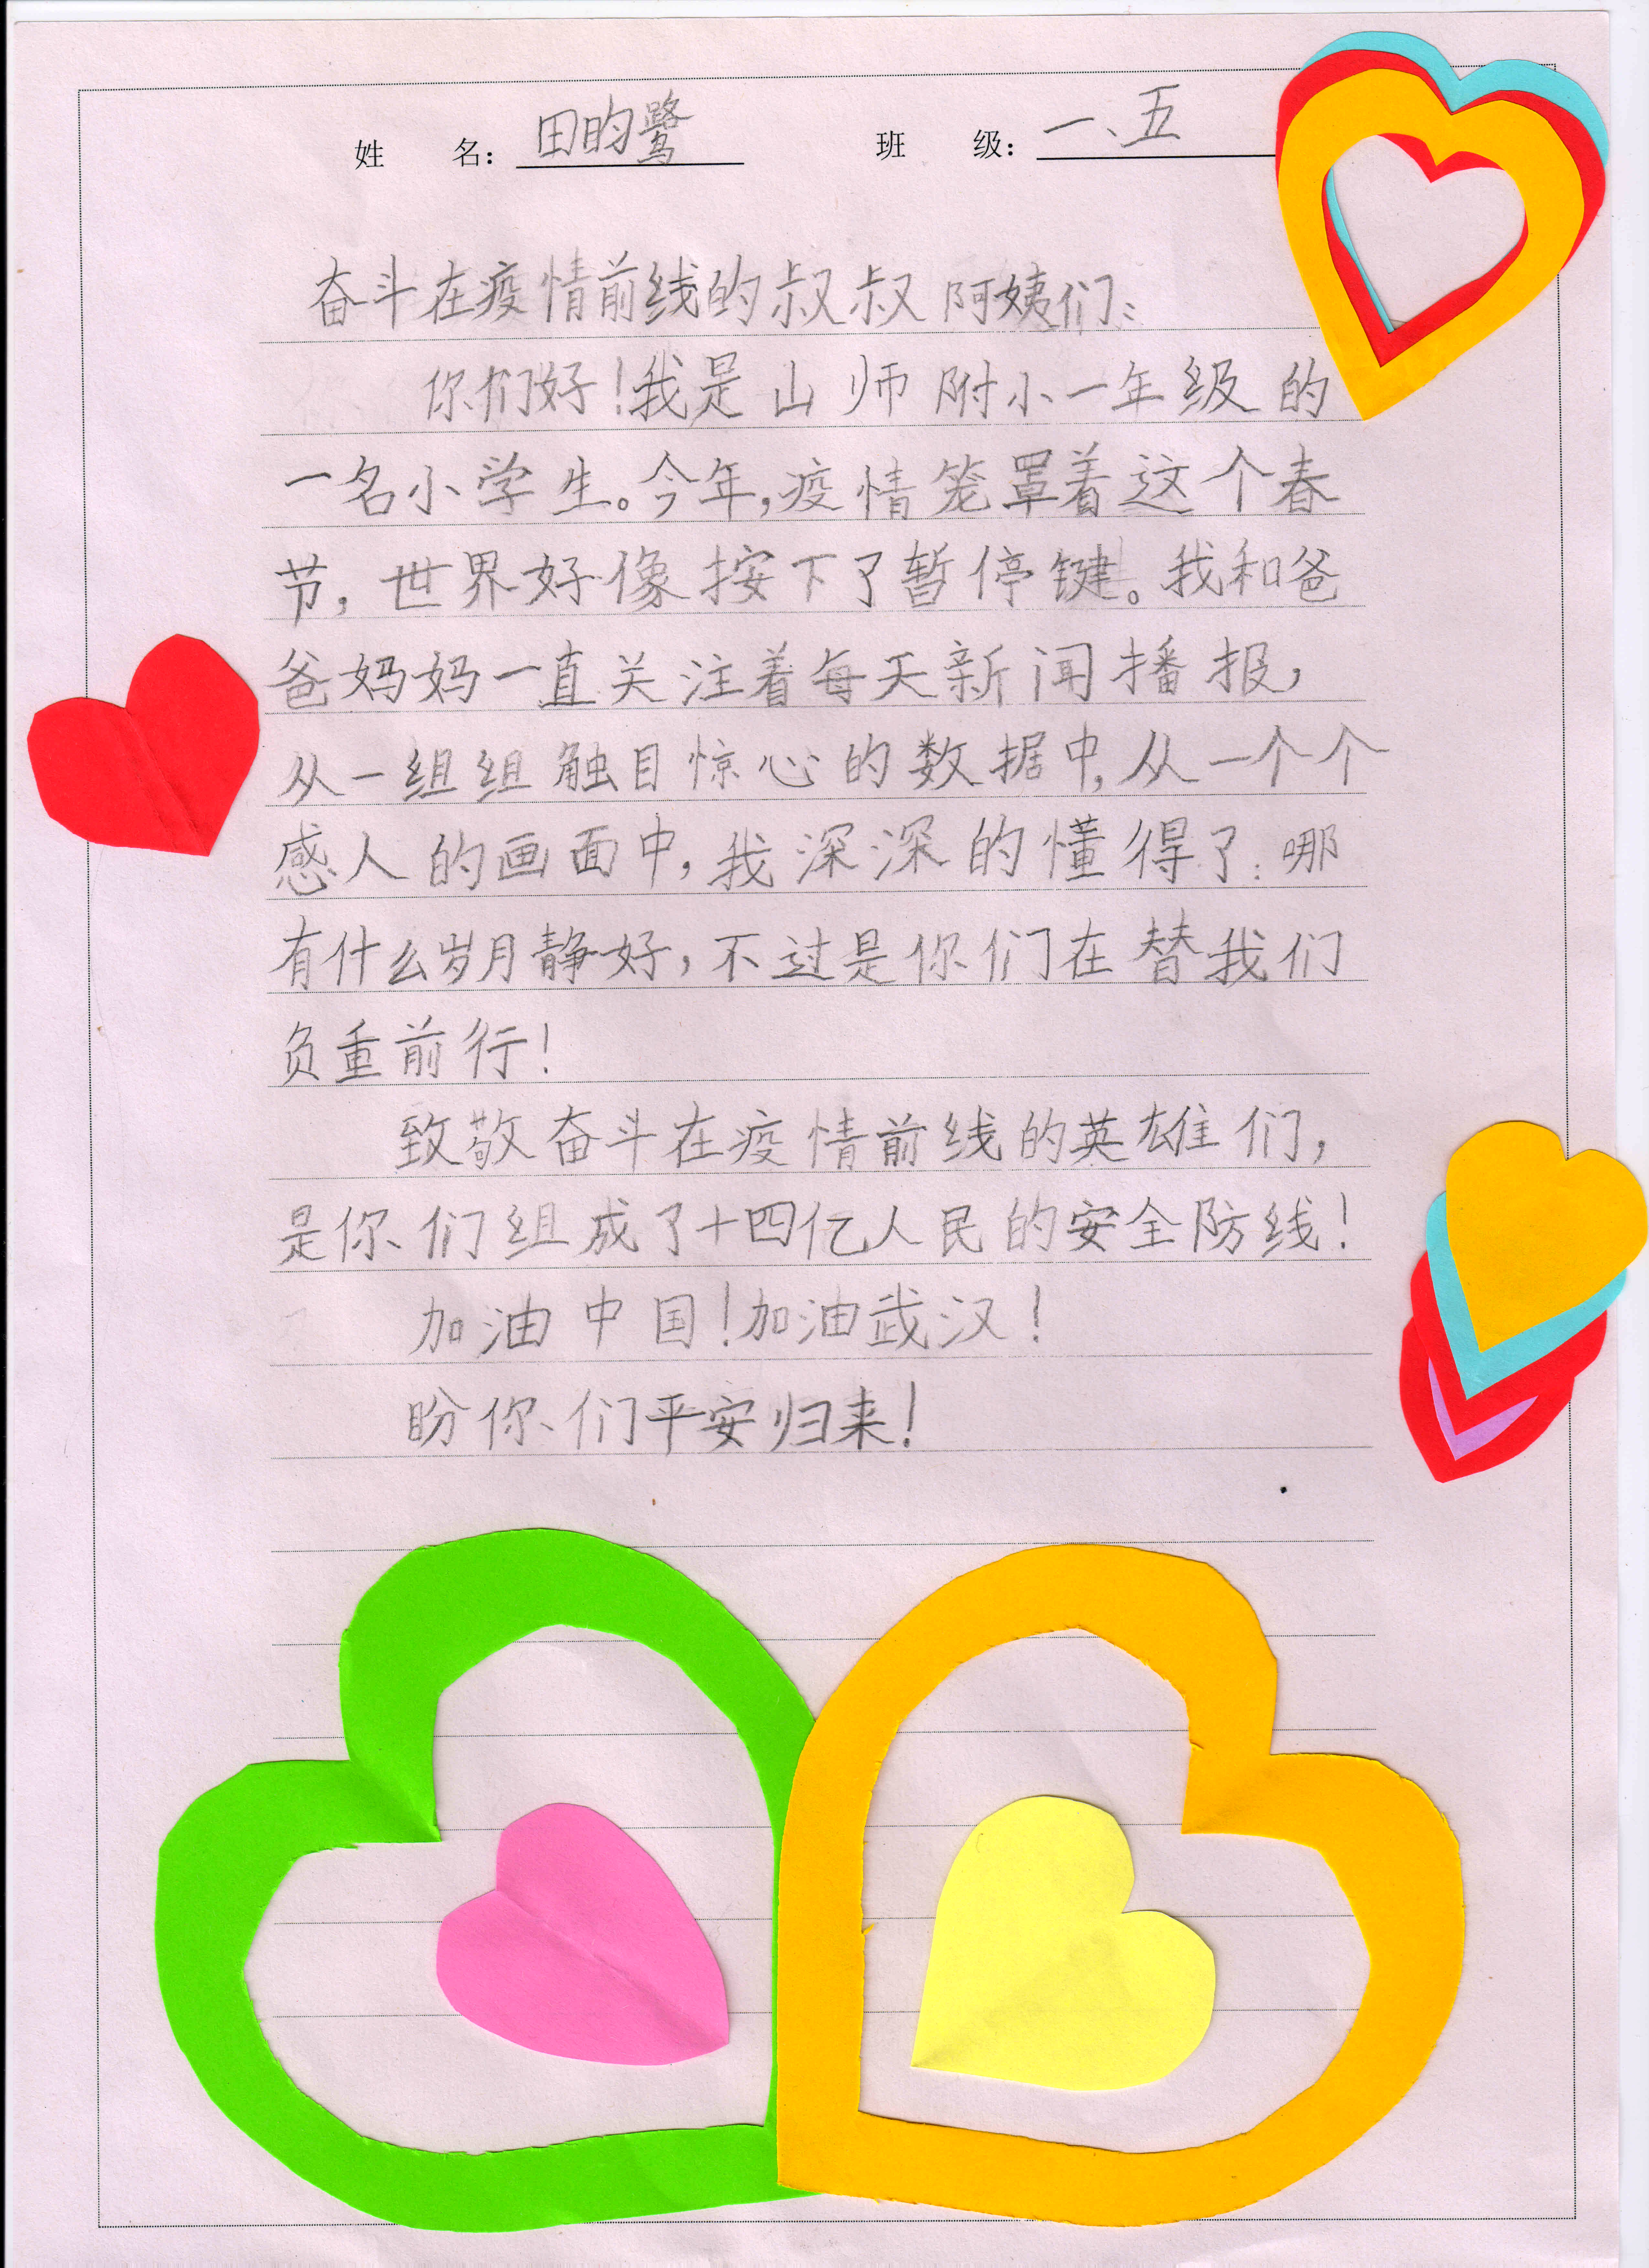 姓 名：田昀鹭 班 级：一、五
奋斗在疫情前线的叔叔阿姨们：
你们好！我是山师附小一年级的
一名小学生。今年，疫情笼罩着这个春
节，世界好像按下了暂停键。我和爸
爸妈妈一直关注着每天新闻播报，
从一组组触目惊心的数据中，从一个个
感人的画面中，我深深的懂得了：哪
有什么岁月静好，不过是你们在替我们
负重前行！
致敬奋斗在疫情前线的英雄们，
是你们组成了十四亿人民的安全防线！
加油中国！加油武汉！
盼你们平安归来！